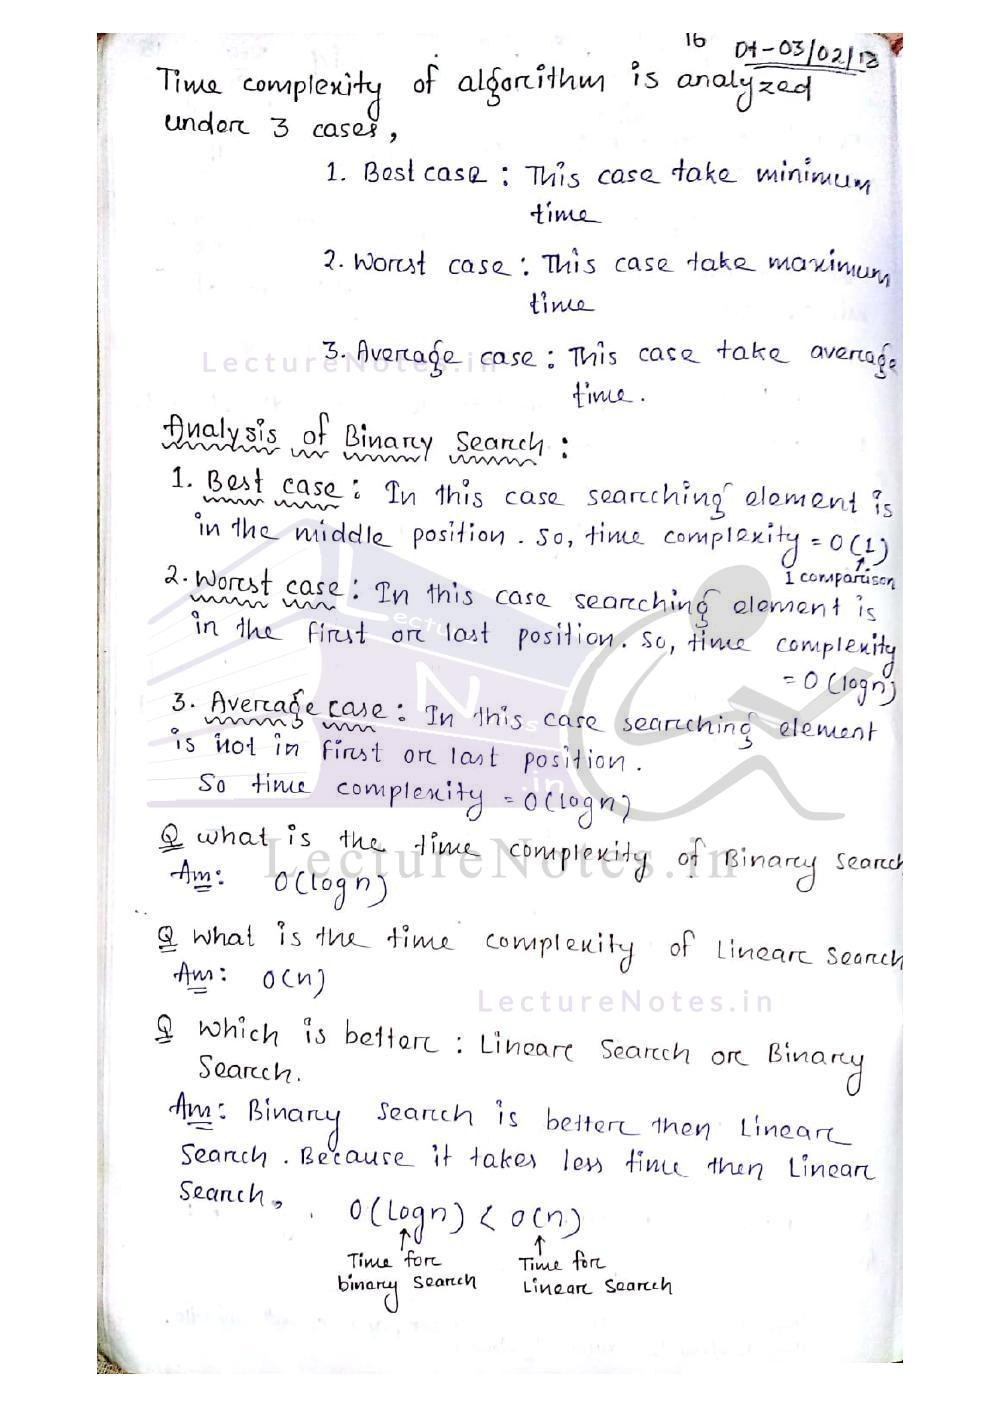 16 Dt-03/02/18
Time complexity of algorithm is analyzed
under 3 cases,
1. Best case : This case take minimum
time
2. Worst case : This case take maximum
time
3. Average case : This case take average
LectureNotes.in
time.
Analysis of Binary Search :
1. Best case : In this case searching element is
in the middle position. So, time complexity = O(1)
1 comparison
2. Worst case : In this case searching element is
in the first or last position. So, time complexity
= O(logn)
3. Average case : In this case searching element
is not in first or last position.
So time complexity = O(logn)
Q what is the time complexity of Binary Search
LectureNotes.in
Ans: O(logn)
Q What is the time complexity of Linear Search
Ans: O(n)
LectureNotes.in
Q Which is better : Linear Search or Binary
Search.
Ans: Binary Search is better then Linear
Search. Because it takes less time then Linear
Search.
O(Logn) < O(n)
Time for Time for
binary Search Linear Search